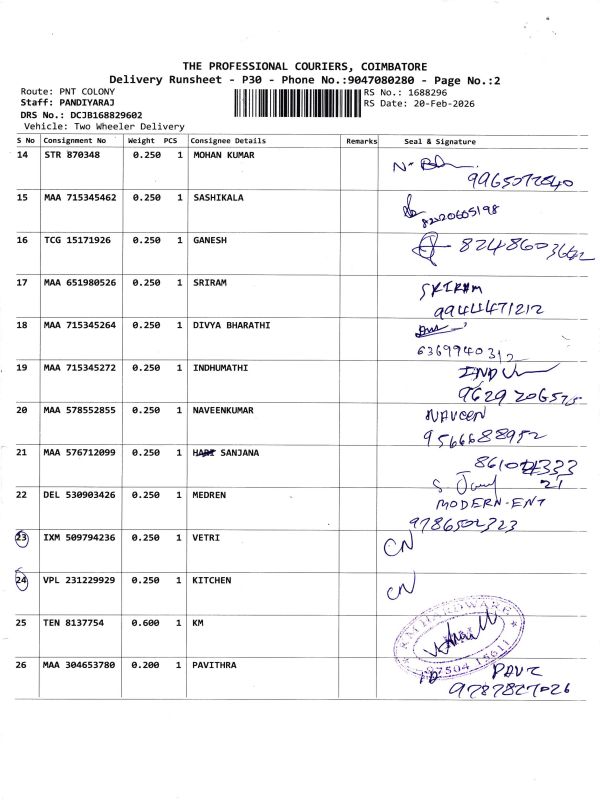 THE PROFESSIONAL COURIERS, COIMBATORE
Delivery Runsheet - P30 - Phone No.:9047080280 - Page No.:2
Route: PNT COLONY
RS No.: 1688296
Staff: PANDIYARAJ
RS Date: 20-Feb-2026
DRS No.: DCJB168829602
Vehicle: Two Wheeler Delivery
S No Consignment No Weight PCS Consignee Details Remarks Seal & Signature
14 STR 870348 0.250 1 MOHAN KUMAR
15 MAA 715345462 0.250 1 SASHIKALA
8220605198
16 TCG 15171926 0.250 1 GANESH
17 MAA 651980526 0.250 1 SRIRAM SRIRAM
9944471212
18 MAA 715345264 0.250 1 DIVYA BHARATHI
6369940312
19 MAA 715345272 0.250 1 INDHUMATHI
9629206575
20 MAA 578552855 0.250 1 NAVEENKUMAR NAVEEN
9566688952
21 MAA 576712099 0.250 1 HARI SANJANA
22 DEL 530903426 0.250 1 MEDREN MODERN-ENT
9786502323
23 IXM 509794236 0.250 1 VETRI CN
24 VPL 231229929 0.250 1 KITCHEN CN
25 TEN 8137754 0.600 1 KM
KM HARDWARE
97504 15611
26 MAA 304653780 0.200 1 PAVITHRA
9787827026